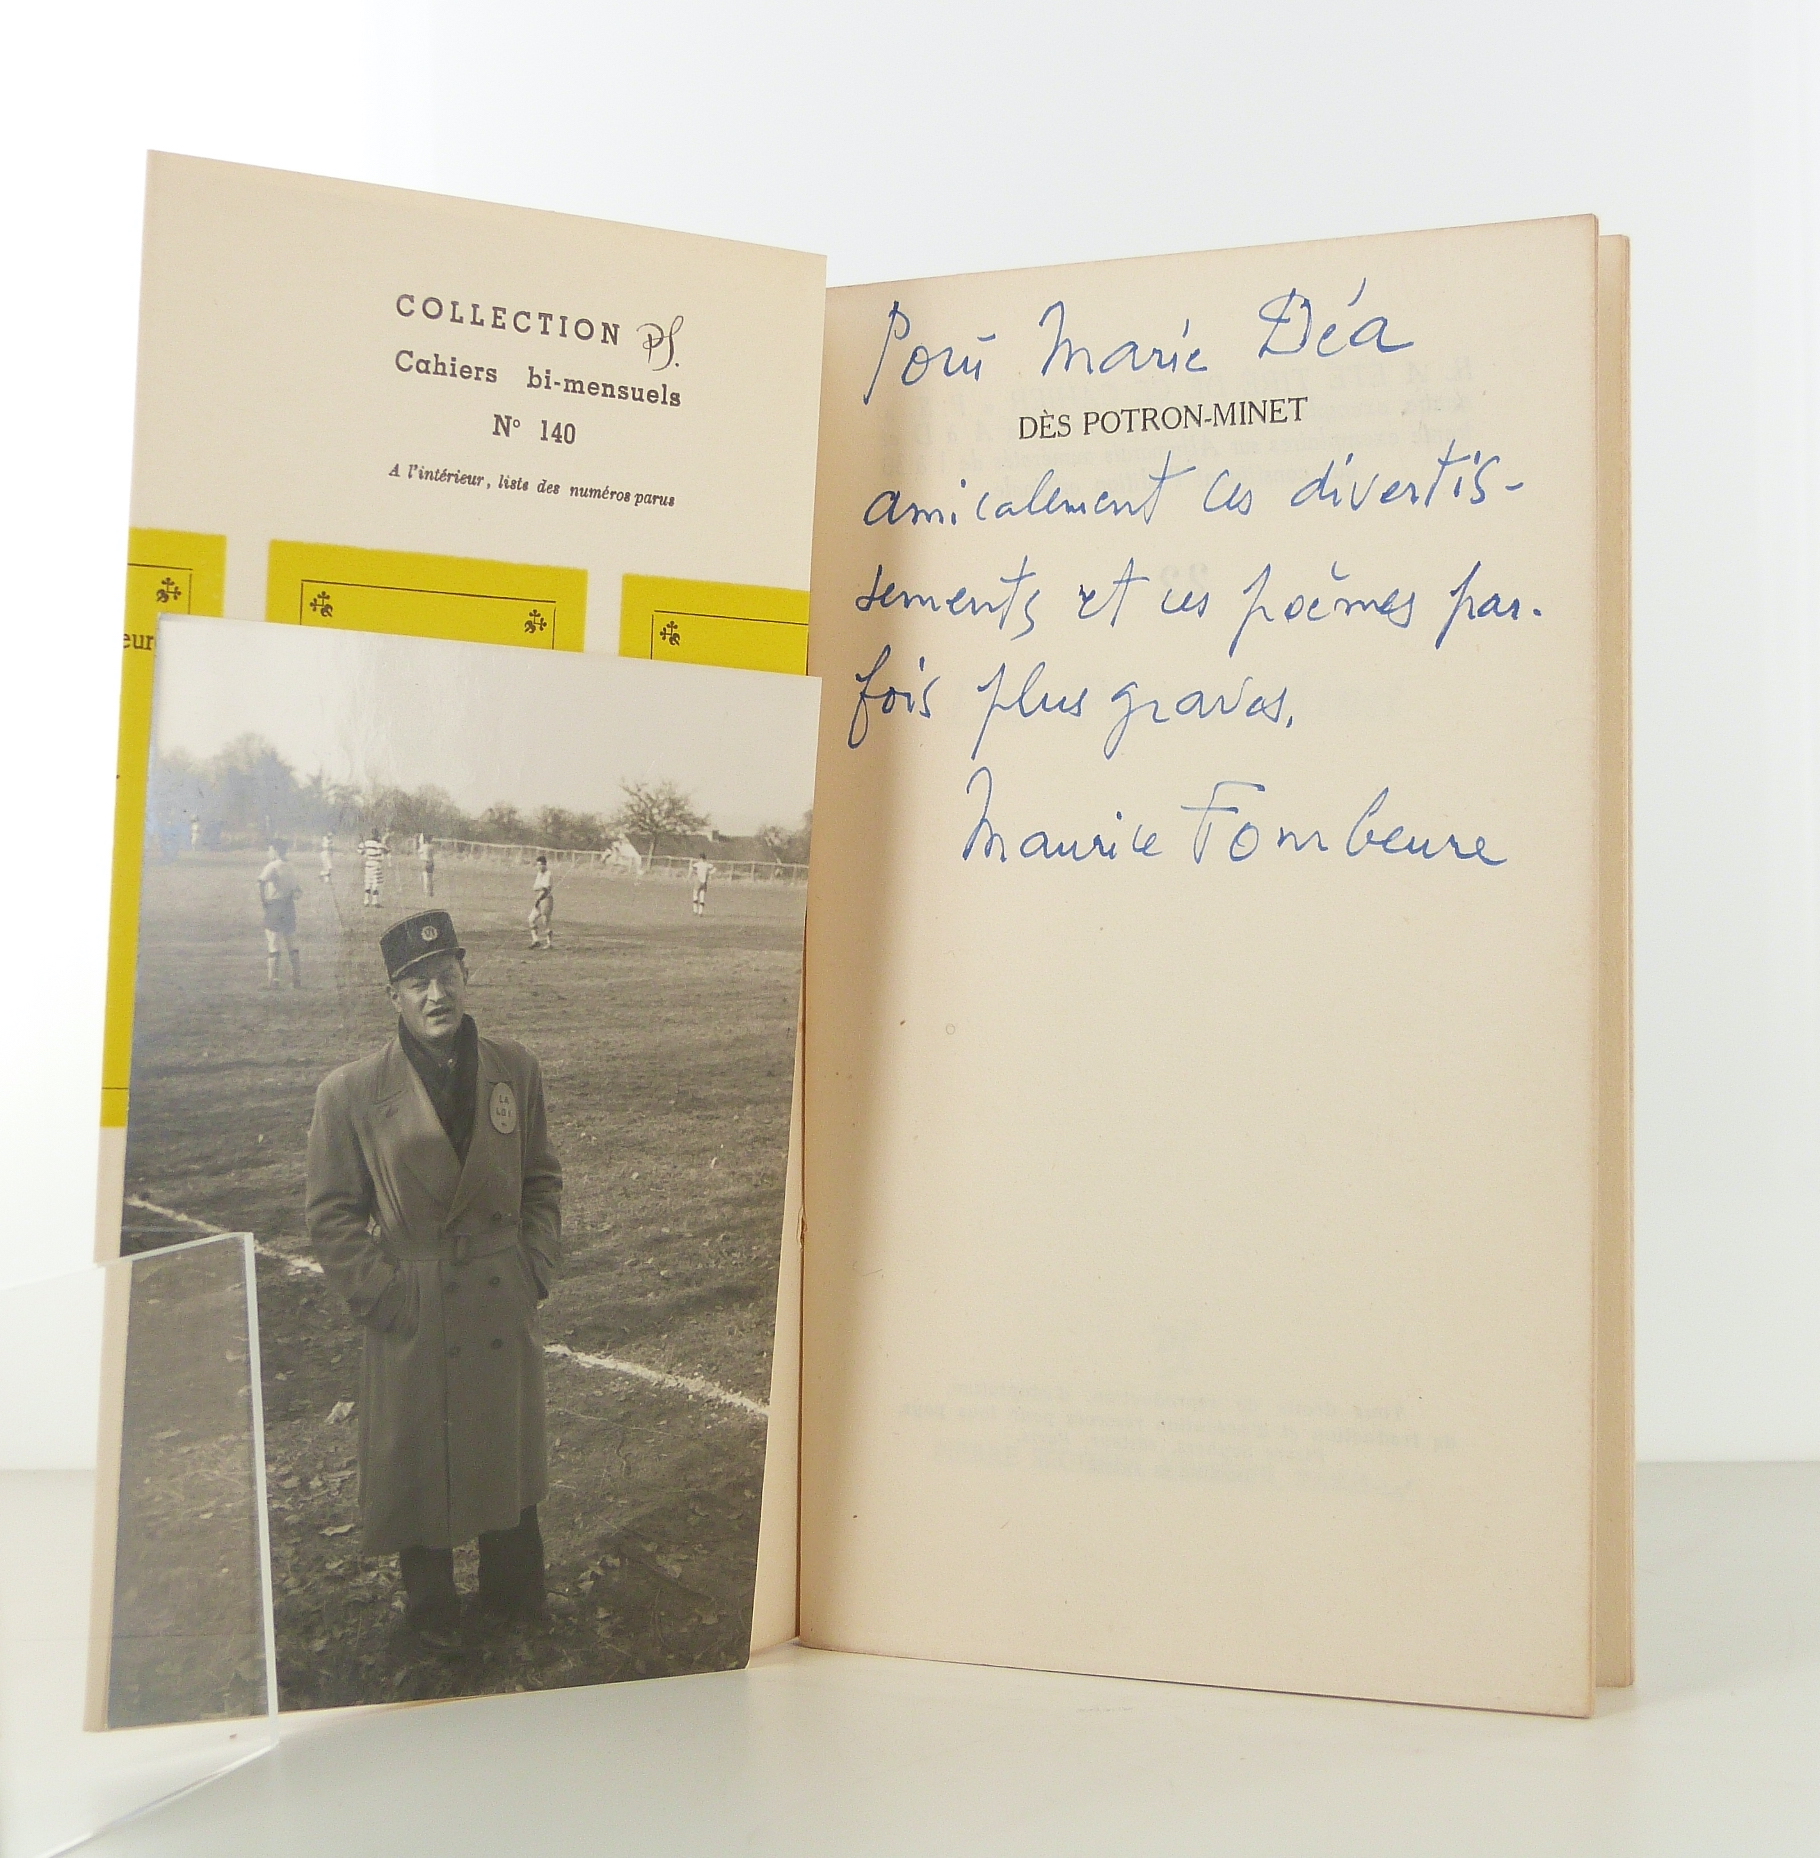 COLLECTION PS.
Cahiers bi-mensuels
N° 140
A l'intérieur, liste des numéros parus
eur
LA
LOI
Pour Marie Déa
DÈS POTRON-MINET
amicalement ces divertis-
sements et ces poèmes par-
fois plus graves.
Maurice Fombeure